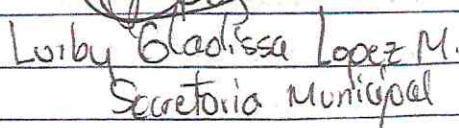 Lorby Gladissa Lopez M.
Secretaria Municipal